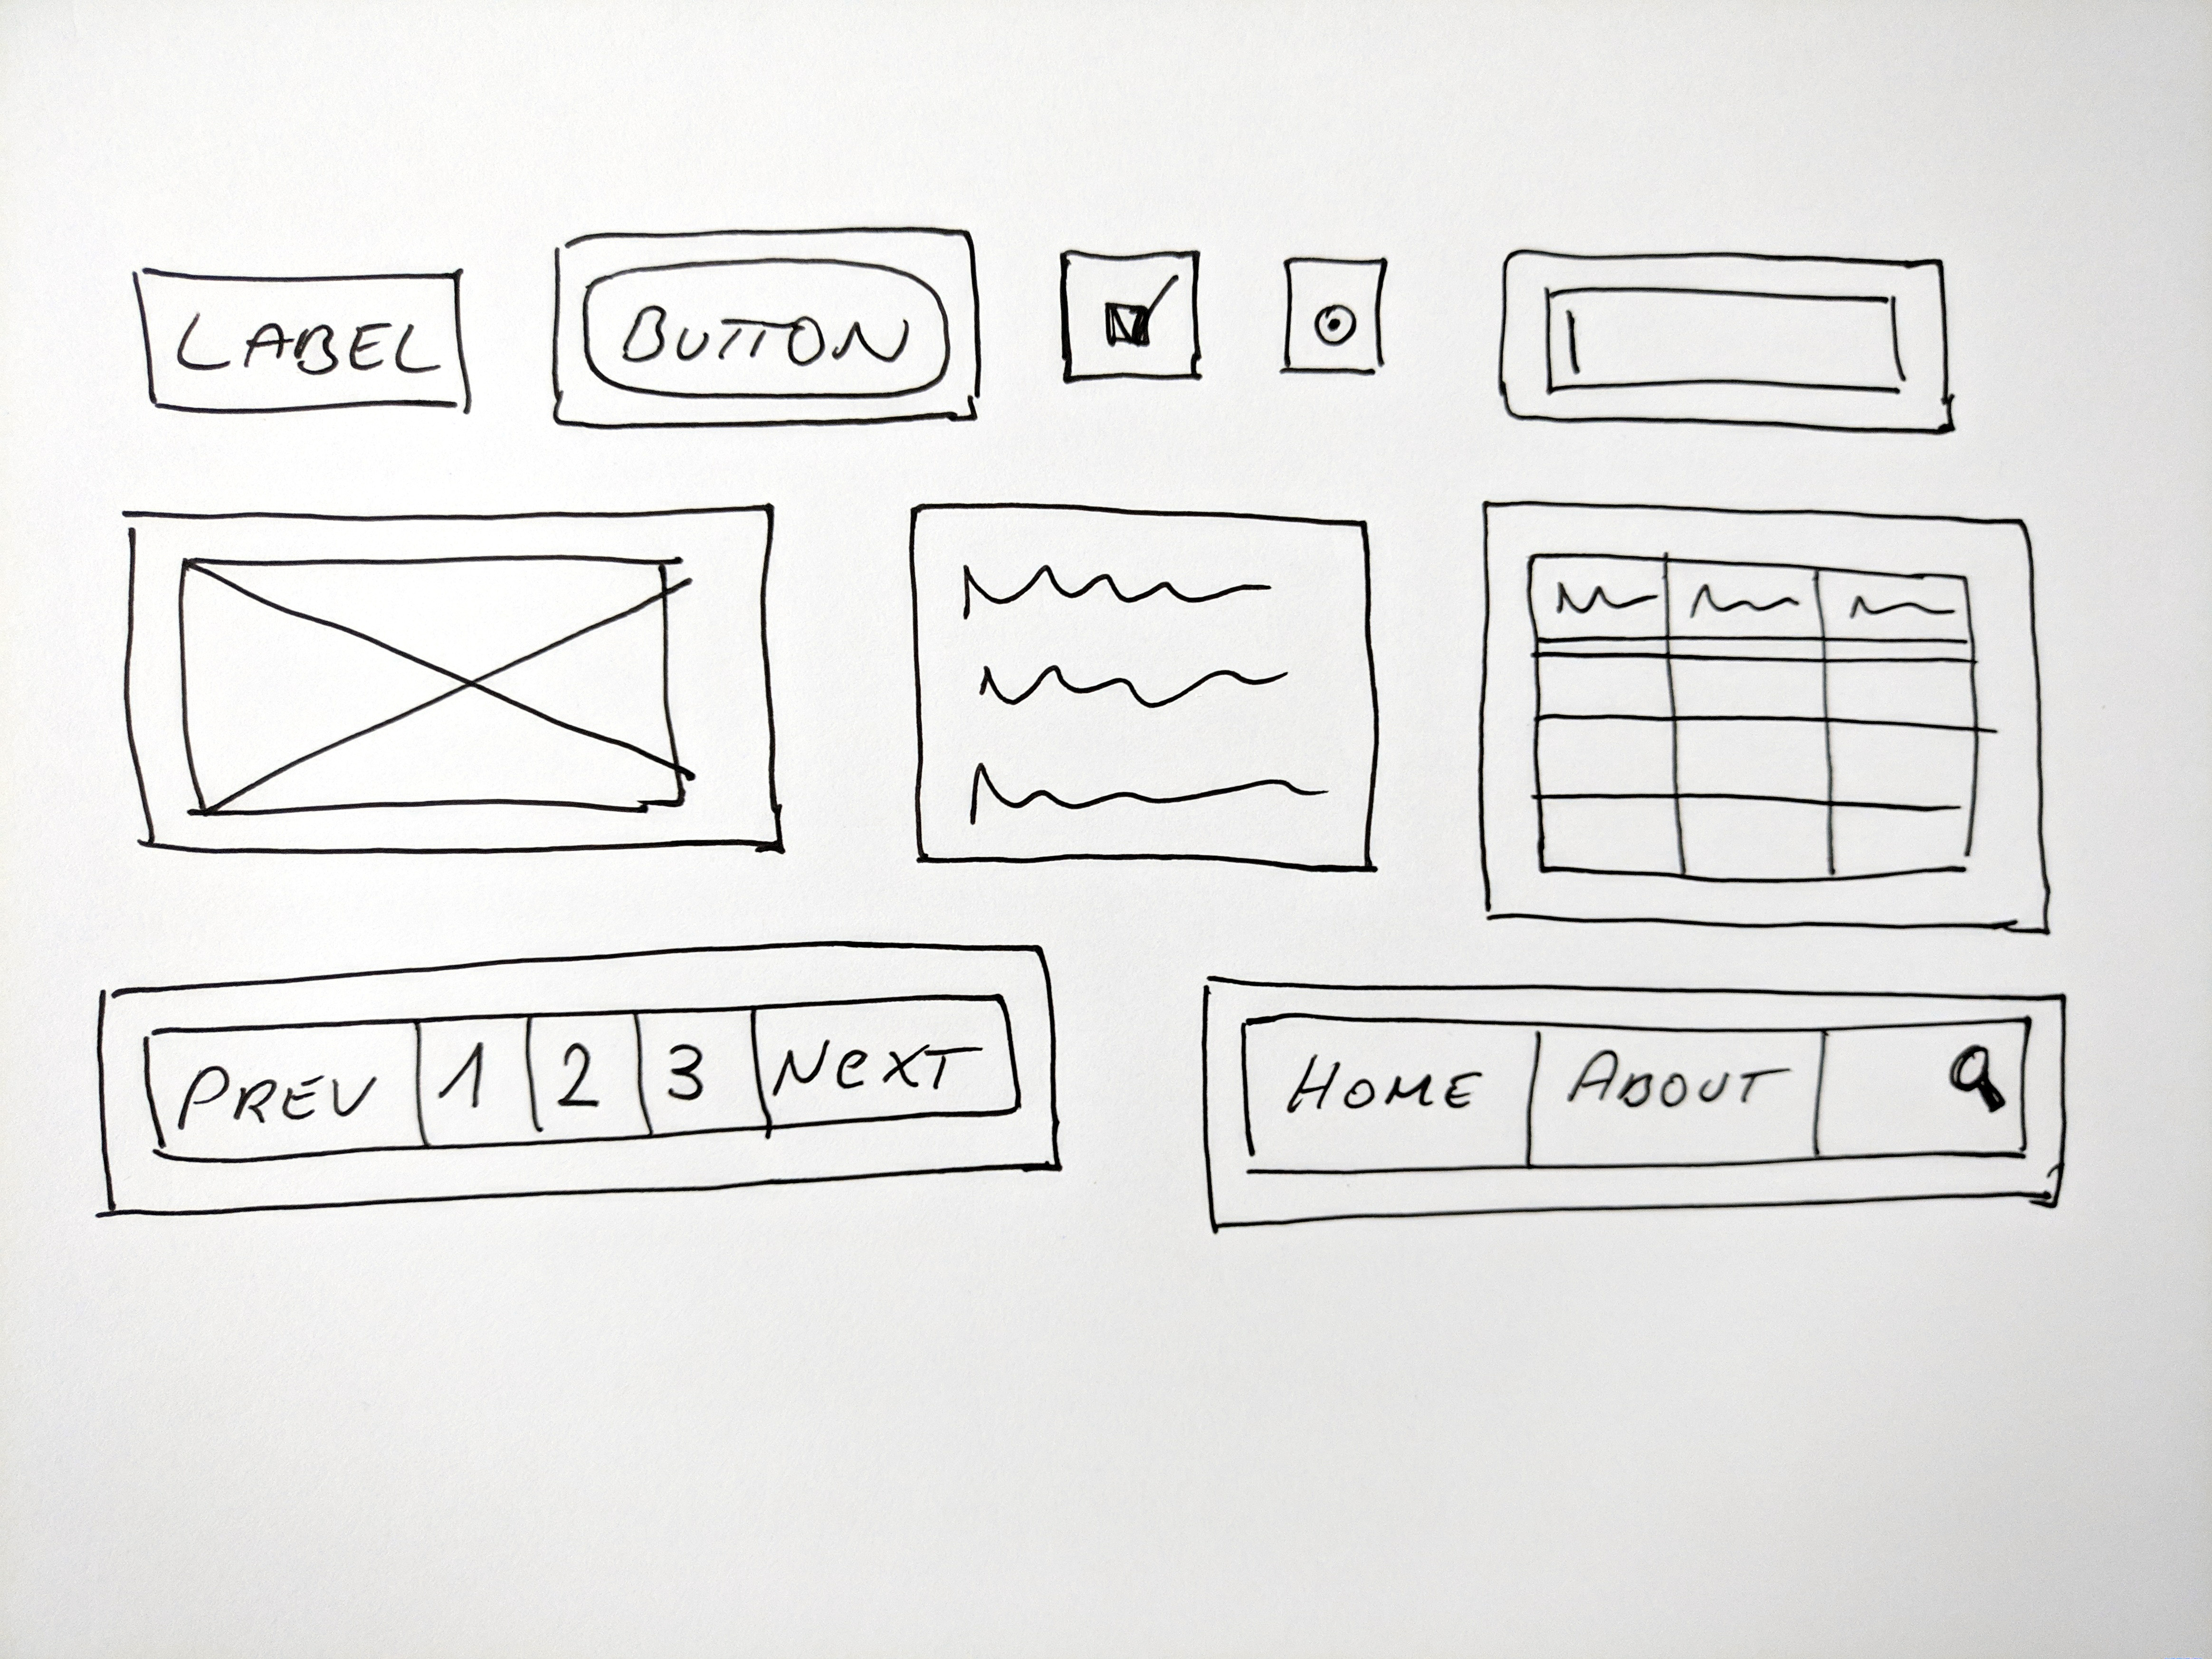 LABEL
BUTTON
PREV 1 2 3 NeXT
HOME ABOUT